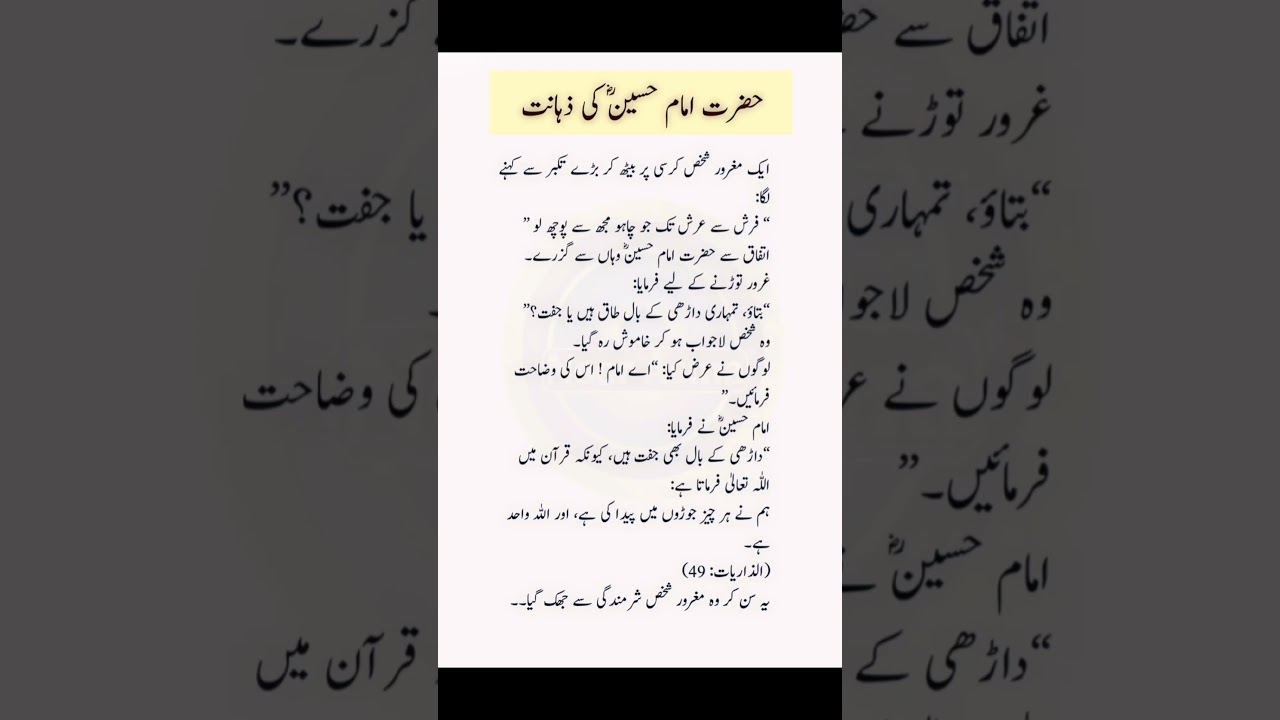 حضرت امام حسینؓ کی ذہانت
ایک مغرور شخص کرسی پر بیٹھ کر بڑے تکبر سے کہنے
لگا:
“ فرش سے عرش تک جو چاہو مجھ سے پوچھ لو ”
اتفاق سے حضرت امام حسینؓ وہاں سے گزرے۔
غرور توڑنے کے لیے فرمایا:
“بتاؤ، تمہاری داڑھی کے بال طاق ہیں یا جفت؟”
وہ شخص لاجواب ہو کر خاموش رہ گیا۔
لوگوں نے عرض کیا: “اے امام ! اس کی وضاحت
فرمائیں۔”
امام حسینؓ نے فرمایا:
“داڑھی کے بال بھی جفت ہیں، کیونکہ قرآن میں
اللہ تعالیٰ فرماتا ہے:
ہم نے ہر چیز جوڑوں میں پیدا کی ہے، اور اللہ واحد
ہے۔
(الذاریات: 49)
یہ سن کر وہ مغرور شخص شرمندگی سے جھک گیا۔۔